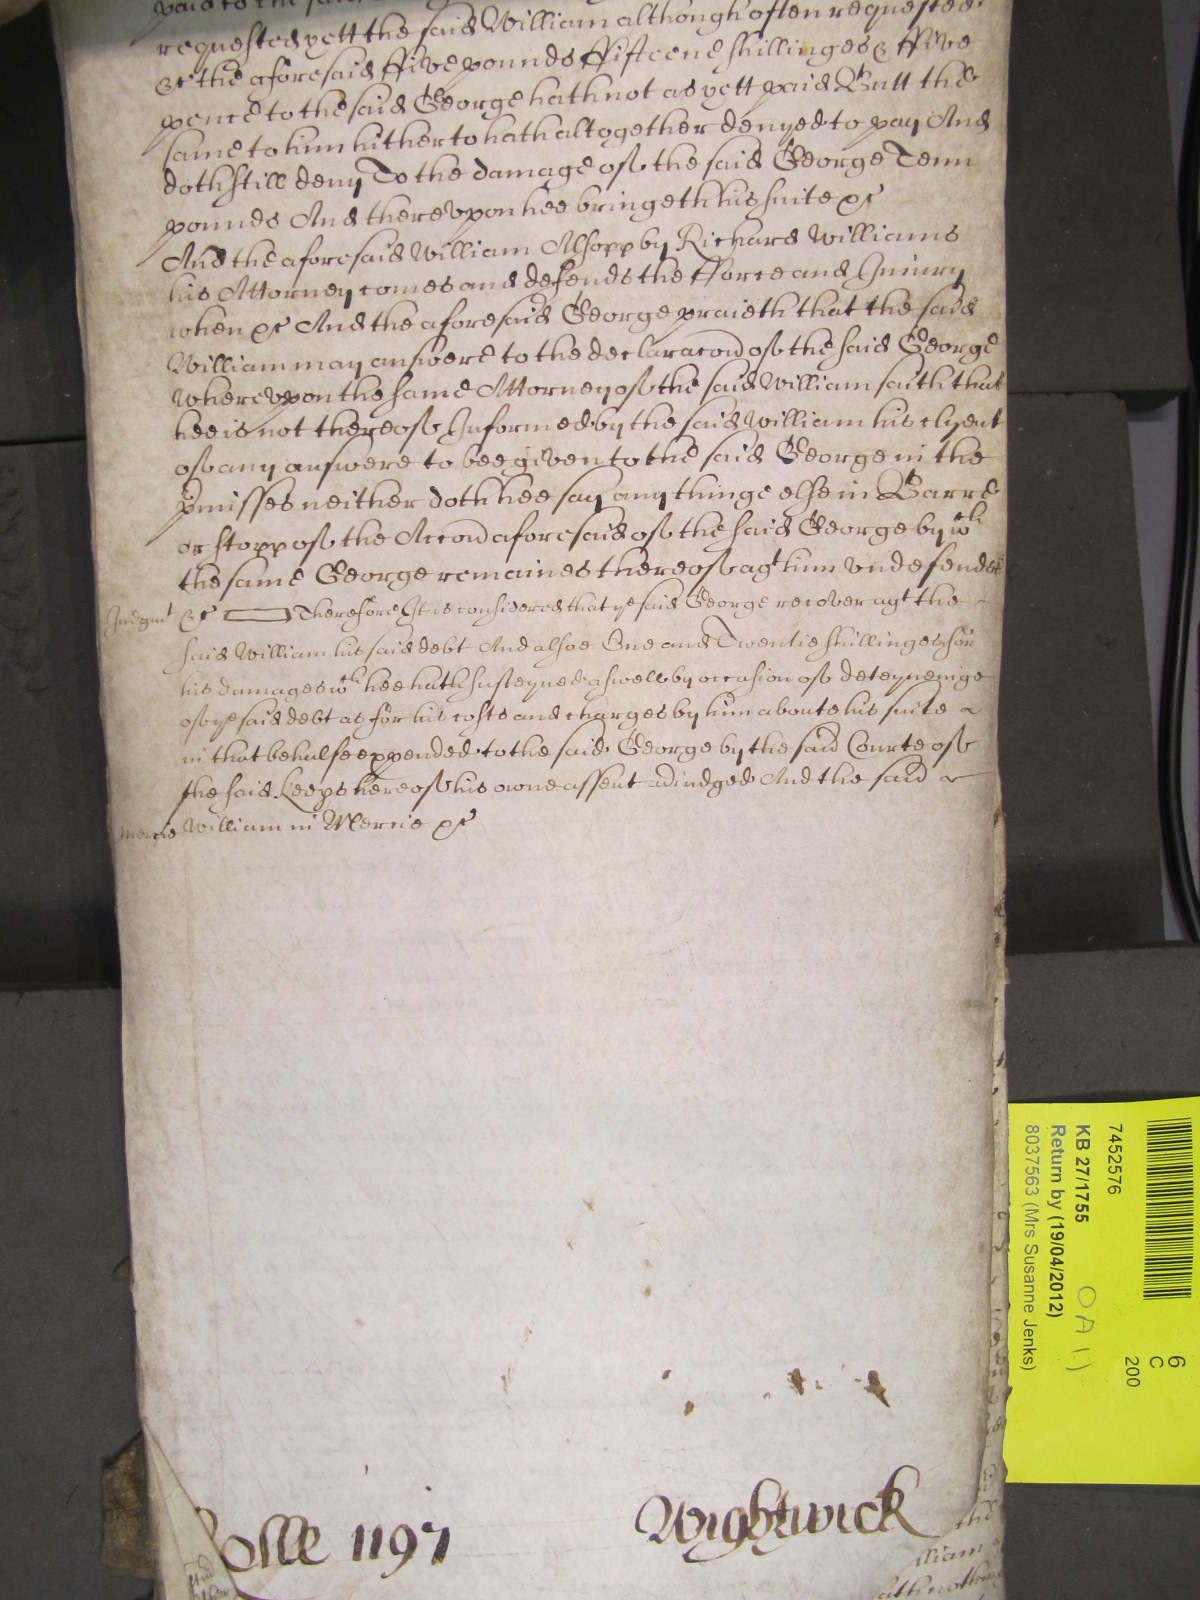 paid to the said
requested yett the said William although often requested
&c the aforesaid ffive pounds ffifteene shillinges & ffive
pence to the said George hath not as yett paid Butt the
same to him hitherto hath altogether denyed to pay And
doth still deny To the damage of the said George Tenn
pounds And therevpon hee bringeth his suite &c
And the aforesaid William Alsopp by Richard Williams
his Attorney comes and defends the fforce and Iniury
when &c And the aforesaid George praieth that the said
William may answere to the declaracon of the said George
wherevpon the same Attorney of the said William saith that
hee is not thereof Informed by the said William his clyent
of any answere to bee given to the said George in the
pmisses neither doth hee say any thinge else in Barre
or stopp of the Accon aforesaid of the said George by wch
the same George remaines thereof agt him vndefended
Iudgmt &c Therefore It is considered that ye said George recover agt the
said William his said debt And alsoe One and Twentie shillinges for
his damages wch hee hath susteyned aswell by occasion of deteyneinge
of ye said debt as for his costs and charges by him aboute his suite
in that behalfe expended to the said George by the said Courte of
the said Keeps hereof his owne assent adiudged And the said
Mercie William in Mercie &c
Rolle 1197
Wightwick
the
lliam
hath not
7452576
KB 27/1755
Return by (19/04/2012)
8037563 (Mrs Susanne Jenks)
O A ( )
6
C
200